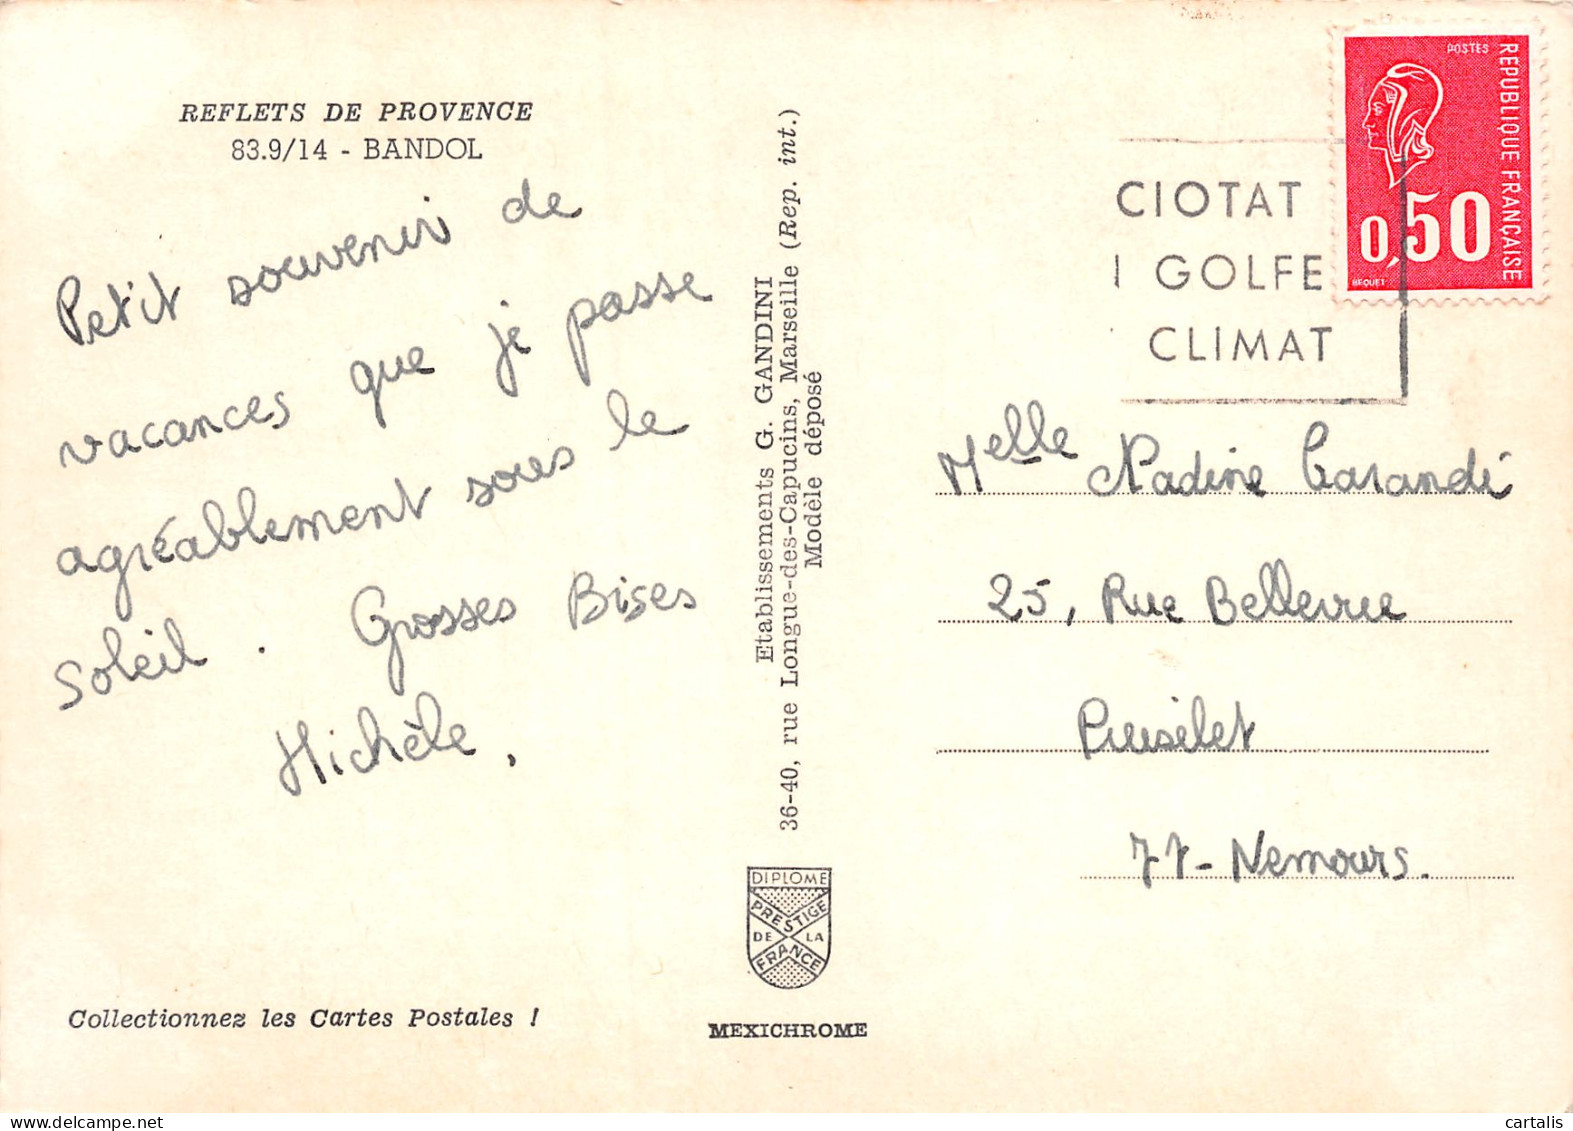 REFLETS DE PROVENCE
83.9/14 - BANDOL
Petit souvenir de
vacances que je passe
agréablement sous le
soleil. Grosses Bises
Michèle.
Collectionnez les Cartes Postales !
Etablissements G. GANDINI
36-40, rue Longue-des-Capucins, Marseille (Rep. int.)
Modèle déposé
DIPLOME
PRESTIGE
DE LA
FRANCE
MEXICHROME
POSTES
REPUBLIQUE FRANÇAISE
0,50
BEQUET
CIOTAT
GOLFE
CLIMAT
Melle Nadine
25, Rue Bellevue
77 - Nemours.
cartalis